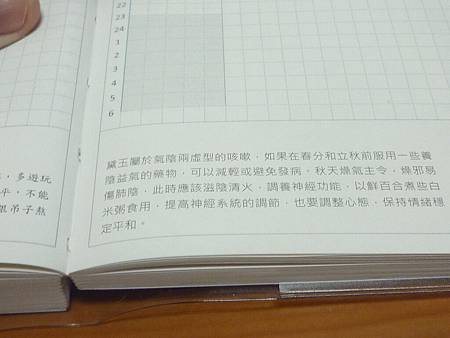 22
23
24
1
2
3
4
5
6
黛玉屬於氣陰兩虛型的咳嗽，如果在春分和立秋前服用一些養
陰益氣的藥物，可以減輕或避免發病，秋天燥氣主令，燥邪易
傷肺陰，此時應該滋陰清火，調養神經功能，以鮮百合煮些白
米粥食用，提高神經系統的調節，也要調整心態，保持情緒穩
定平和。
，多遊玩
平，不能
銀吊子熬